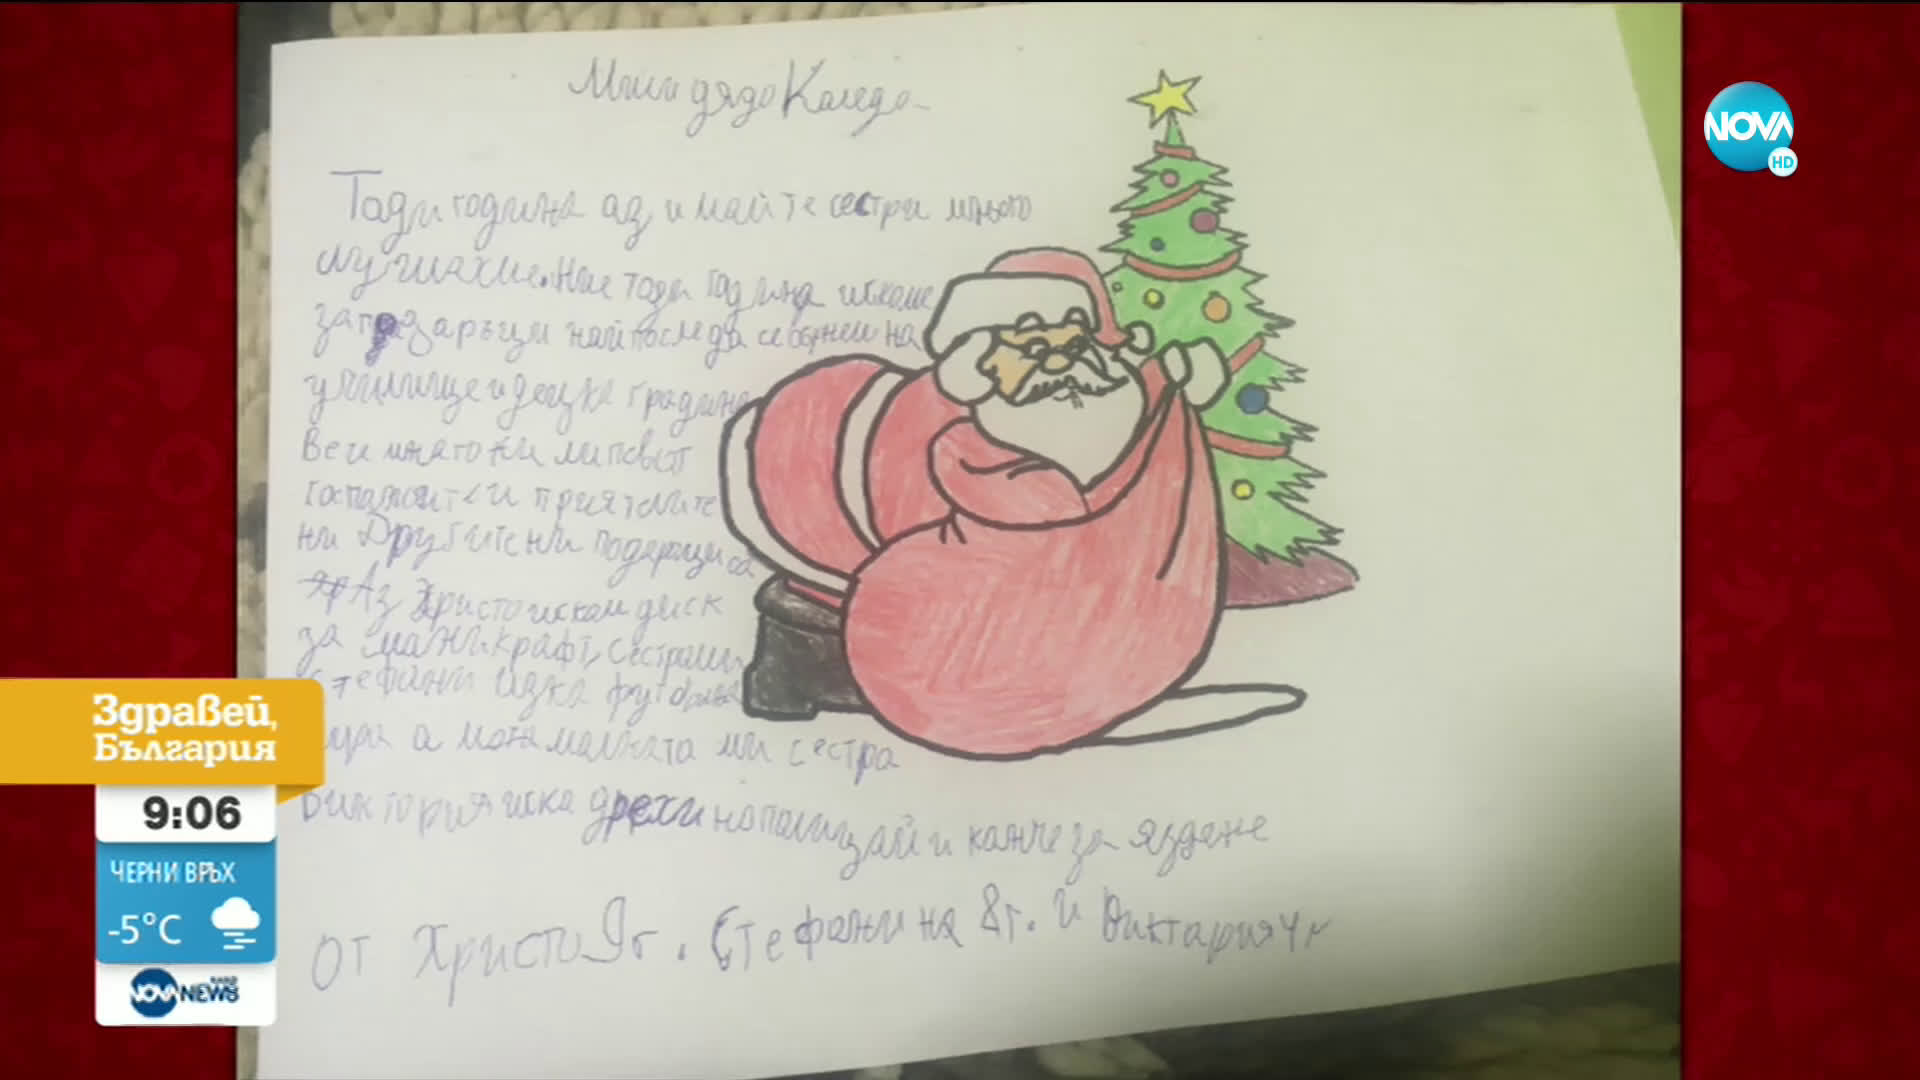 Мили дядо Коледо
Тази година аз и майте сестри много
слушахме. Ние тази година искаме
за подаръци най после да се върнем на
училище и децка градина
Вече много ни липсват
госпажите и приятелите
ни Другите ни подаръци са
Аз Христо искам диск
за майнкрафт, сестрами
Стефани иска футболна
а мойта малката ми сестра
Виктория иска дрехи на полицай и конче за яздене
от Христо 9г. Стефани на 8г. и Виктария 4г
NOVA
HD
Здравей,
България
9:06
ЧЕРНИ ВРЪХ
-5°C
NOVA NEWS